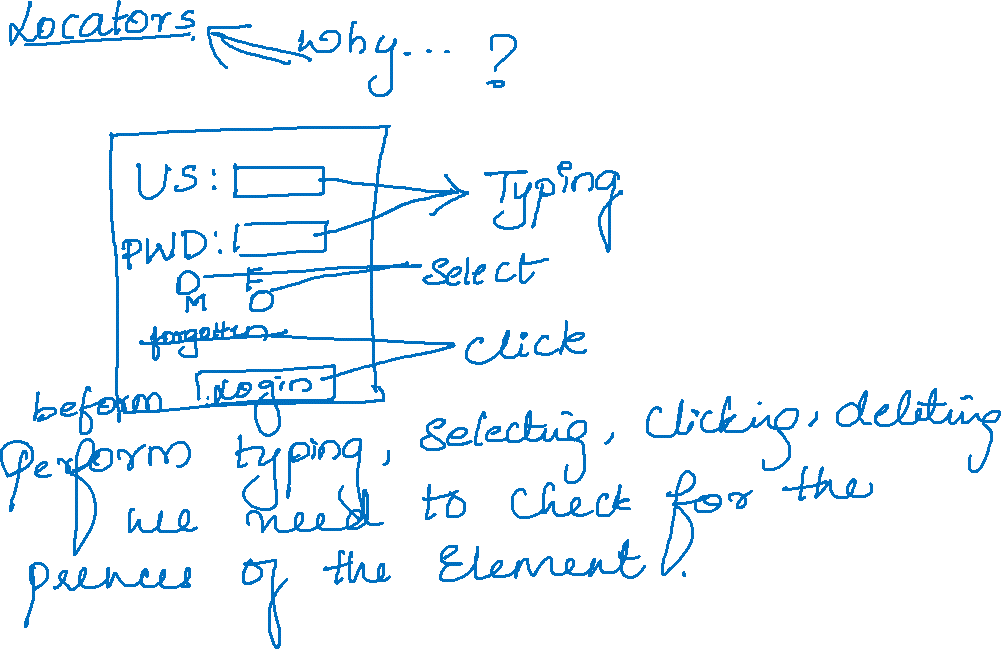 Locators
Why... ?
US:
Typing
PWD:
M F
Select
forgotten
Click
Login
beform
Perform typing, selecting, clicking, deleting
we need to check for the
prences of the Element.